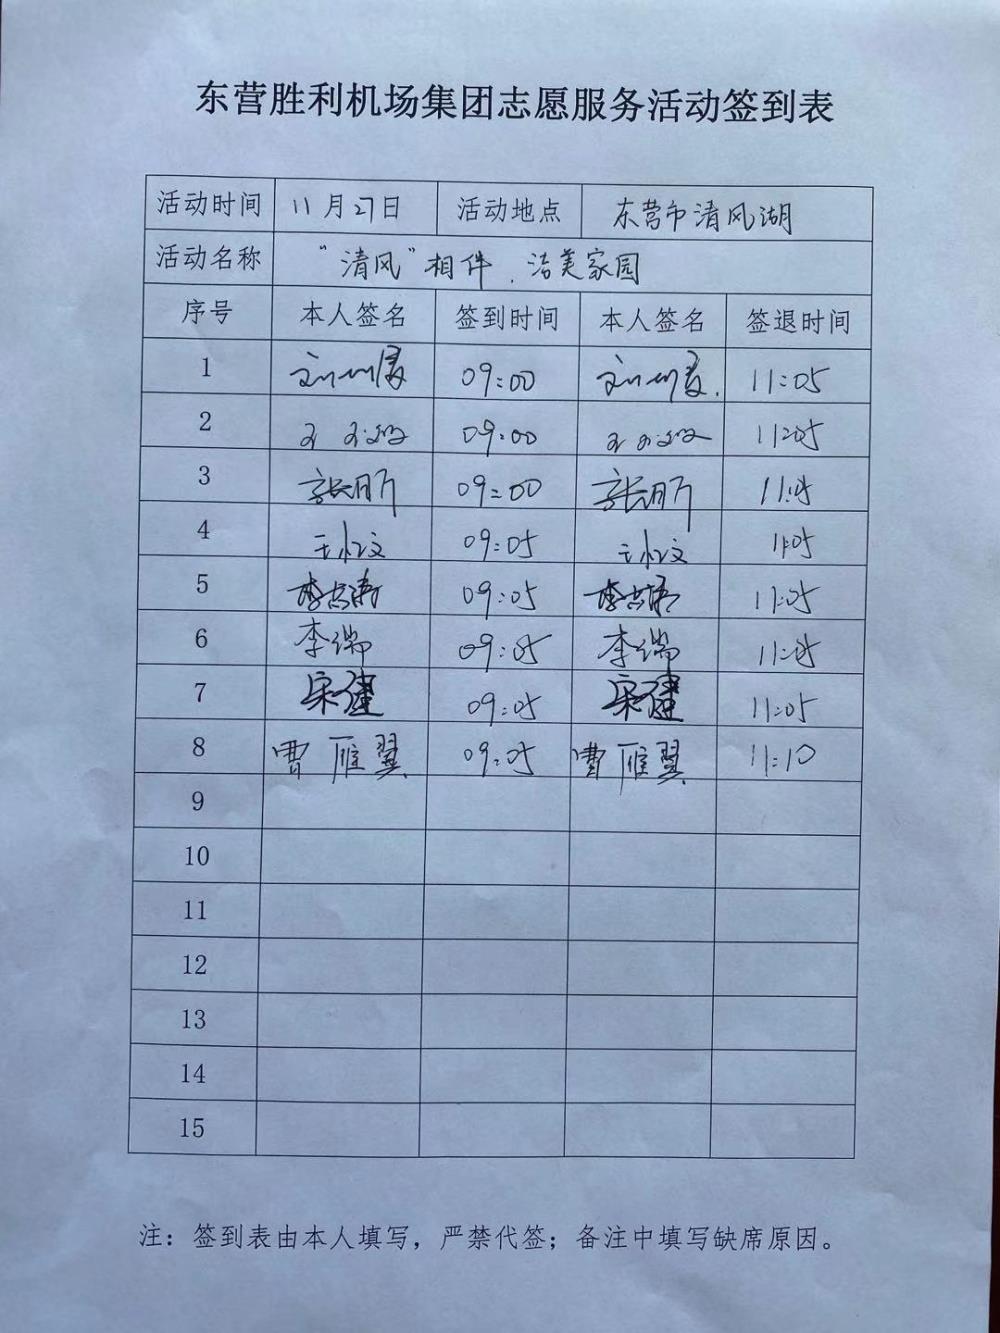 东营胜利机场集团志愿服务活动签到表
活动时间 11月27日 活动地点 东营市清风湖
活动名称 “清风”相伴,洁美家园
序号 本人签名 签到时间 本人签名 签退时间
1 09:00 11:05
2 09:00 11:05
3 张昕 09:00 张昕 11:05
4 09:05 11:05
5 09:05 11:05
6 李瑞 09:05 李瑞 11:05
7 宋健 09:05 宋健 11:05
8 曹雁翼 09:05 曹雁翼 11:10
9
10
11
12
13
14
15
注：签到表由本人填写，严禁代签；备注中填写缺席原因。